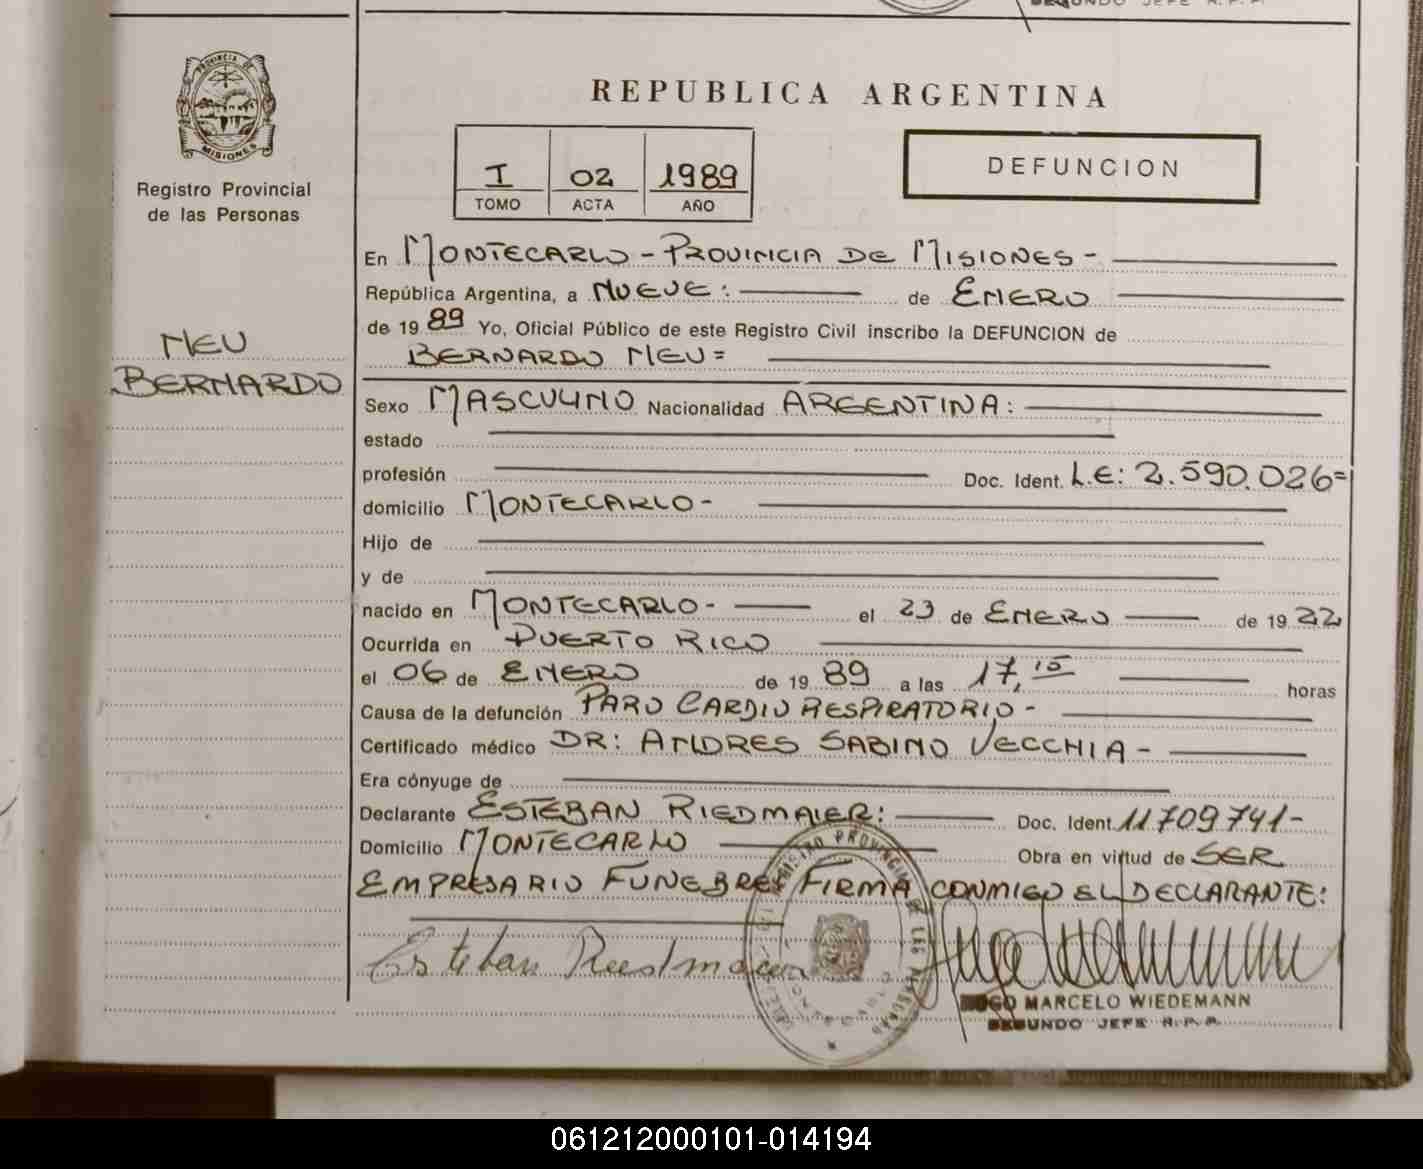 SEGUNDO JEFE R.P.P.
PROVINCIA DE
MISIONES
Registro Provincial
de las Personas
REPUBLICA ARGENTINA
I 02 1989
TOMO ACTA AÑO
DEFUNCION
En MONTECARLO - PROVINCIA DE MISIONES -
República Argentina, a NUEVE: de ENERO
de 19 89 Yo, Oficial Público de este Registro Civil inscribo la DEFUNCION de
BERNARDO NEU =
NEU
BERNARDO
Sexo MASCULINO Nacionalidad ARGENTINA:
estado
profesión Doc. Ident. L.E: 2.590.026=
domicilio MONTECARLO -
Hijo de
y de
nacido en MONTECARLO - el 23 de ENERO de 19 22
Ocurrida en PUERTO RICO
el 06 de ENERO de 19 89 a las 17,15 horas
Causa de la defunción PARO CARDIO RESPIRATORIO -
Certificado médico DR: ANDRES SABINO VECCHIA -
Era cónyuge de
Declarante ESTEBAN RIEDMAIER: Doc. Ident. 11709741-
Domicilio MONTECARLO Obra en virtud de SER
EMPRESARIO FUNEBRE, FIRMA CONMIGO EL DECLARANTE:
Esteban Riedmaier
MARCELO WIEDEMANN
SEGUNDO JEFE R.P.P.
061212000101-014194